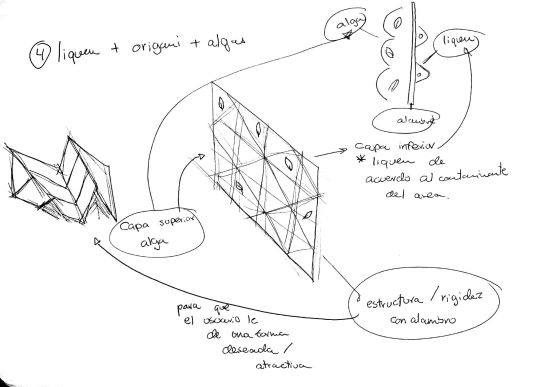 4 liquen + origami + algas
alga
liquen
alambre
capa inferior
* liquen de
acuerdo al contaminante
del area.
Capa superior
alga
estructura / rigidez
con alambro
para que
el usuario le
de una forma
deseada /
atractiva